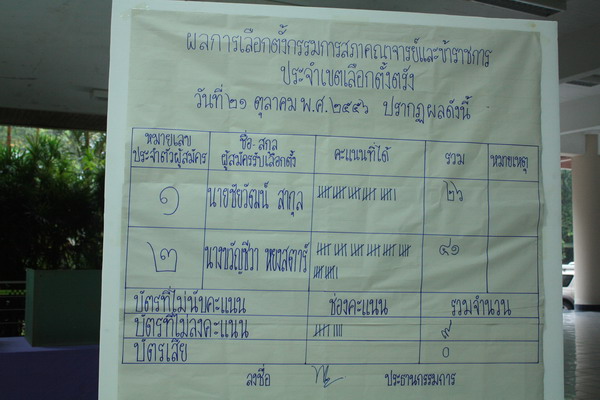 ผลการเลือกตั้งกรรมการสภาคณาจารย์และข้าราชการ
ประจำเขตเลือกตั้งตรัง
วันที่ ๒๑ ตุลาคม พ.ศ. ๒๕๕๖ ปรากฏผลดังนี้
หมายเลข ประจำตัวผู้สมัคร ชื่อ-สกุล ผู้สมัครรับเลือกตั้ง คะแนนที่ได้ รวม หมายเหตุ
๑ นายชัยวัฒน์ สากุล ๒๖
๒ นางขวัญชีวา หยงสตาร์ ๔๑
บัตรที่ไม่นับคะแนน ช่องคะแนน รวมจำนวน
บัตรที่ไม่ลงคะแนน ๙
บัตรเสีย ๐
ลงชื่อ ประธานกรรมการ